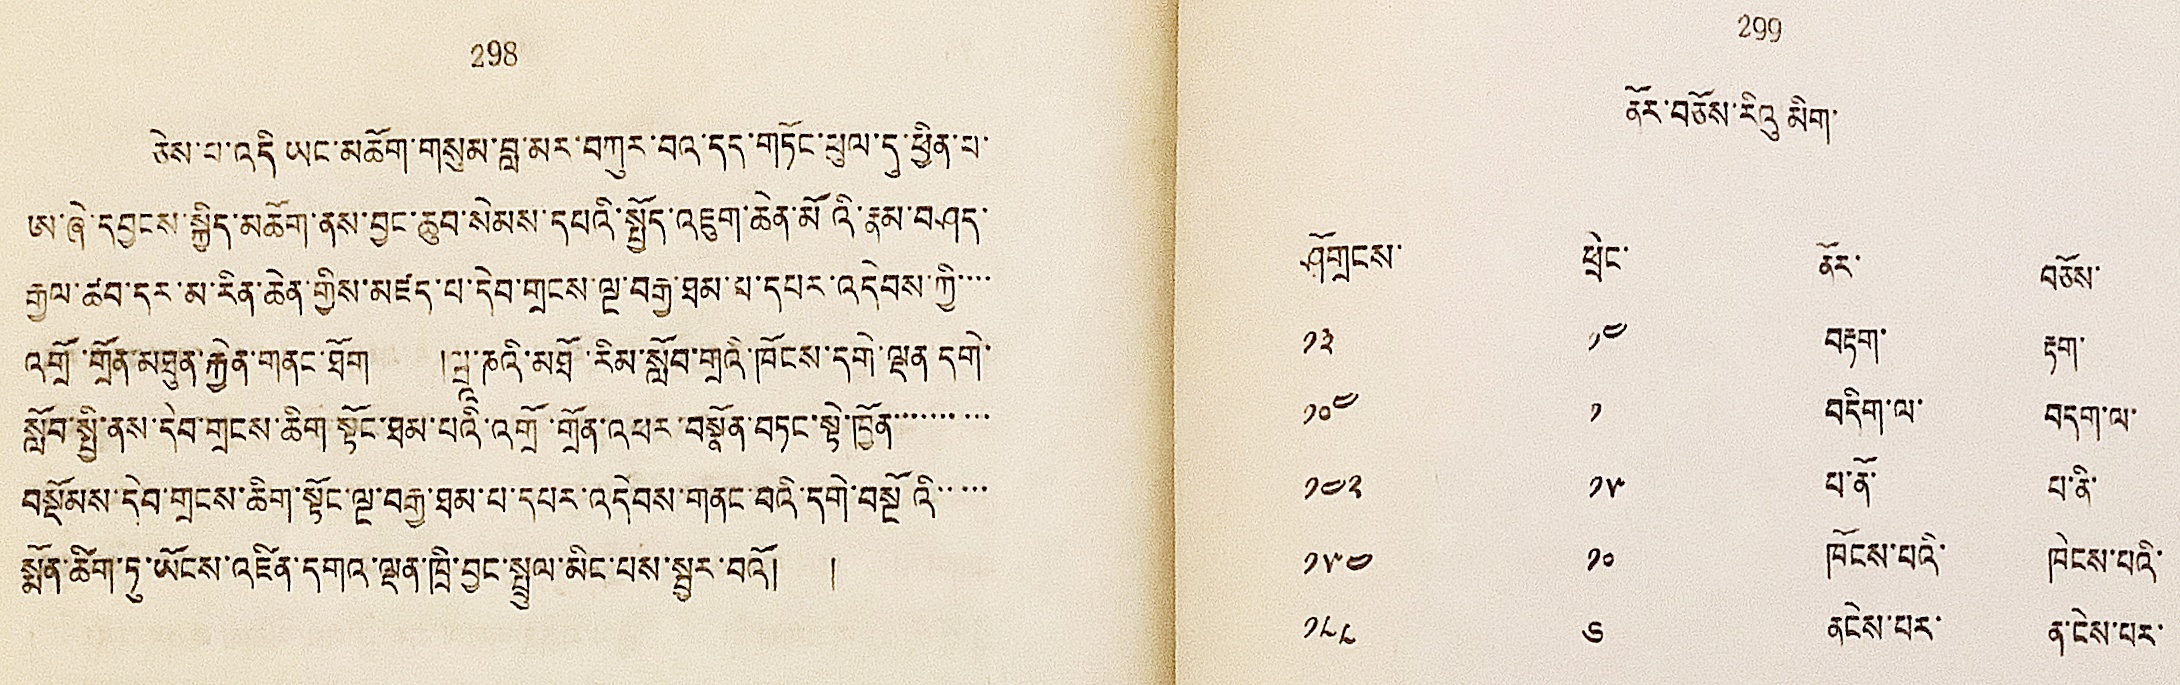 298
ཅེས་པ་འདི་ཡང་མཆོག་གསུམ་བླ་མར་བཀུར་བའ་དད་གཏོང་ཕུལ་དུ་ཕྱིན་པ་
ཨ་ཞེ་དབྱངས་སྐྱིད་མཆོག་ནས་བྱང་ཆུབ་སེམས་དཔའི་སྤྱོད་འཇུག་ཆེན་མོ་འི་རྣམ་བཤད་
རྒྱལ་ཚབ་དར་མ་རིན་ཆེན་གྱིས་མཛད་པ་དེབ་གྲངས་ལྔ་བརྒྱ་ཐམ་པ་དཔར་འདེབས་ཀྱི་····
འགྲོ་གྲོན་མཐུན་རྐྱེན་གནང་ཐོག །བླྲ་ཆའི་མཐོ་རིམ་སློབ་གྲའི་ཁོངས་དགེ་ལྡན་དགེ་
སློབ་སྤྱི་ནས་དེབ་གྲངས་ཆིག་སྟོང་ཐམ་པའི་འགྲོ་གྲོན་འཕར་བསྣོན་བཏང་སྟེ་ཁྱོན··········
བསྡོམས་དེབ་གྲངས་ཆིག་སྟོང་ལྔ་བརྒྱ་ཐམ་པ་དཔར་འདེབས་གནང་བའི་དགེ་བསྔོ་འི·····
སྨོན་ཚིག་ཏུ་ཡོངས་འཛིན་དགའ་ལྡན་ཁྲི་བྱང་སྤྲུལ་མིང་པས་སྦྱར་བའོ། །
299
ནོར་བཅོས་རེའུ་མིག་
ཤོགྲངས་ ཕྲེང་ ནོར་ བཅོས་
༡༣ ༡༧ བརྟག་ རྟག་
༡༠༧ ༡ བདིག་ལ་ བདག་ལ་
༡༧༢ ༡༥ པ་ནོ་ པ་ནི་
༡༥༧ ༡༠ ཁོངས་པའི་ ཁེངས་པའི་
༡༨༨ ༦ ནངེས་པར་ ན་ངེས་པར་